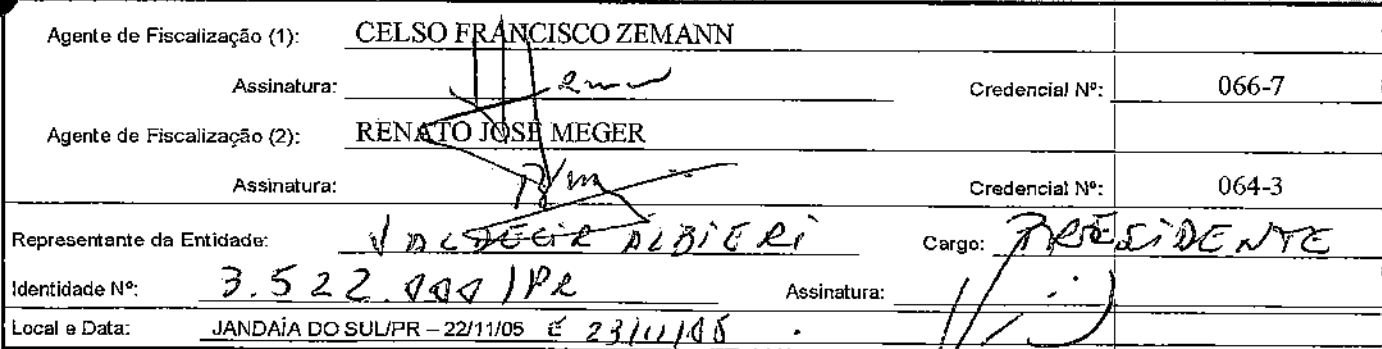 Agente de Fiscalização (1): CELSO FRANCISCO ZEMANN
Assinatura: Credencial Nº: 066-7
Agente de Fiscalização (2): RENATO JOSÉ MEGER
Assinatura: Credencial Nº: 064-3
Representante da Entidade: VALDECIR ALBIERI Cargo: PRESIDENTE
Identidade Nº: 3.522. /PR Assinatura:
Local e Data: JANDAÍA DO SUL/PR – 22/11/05 E 23/11/05